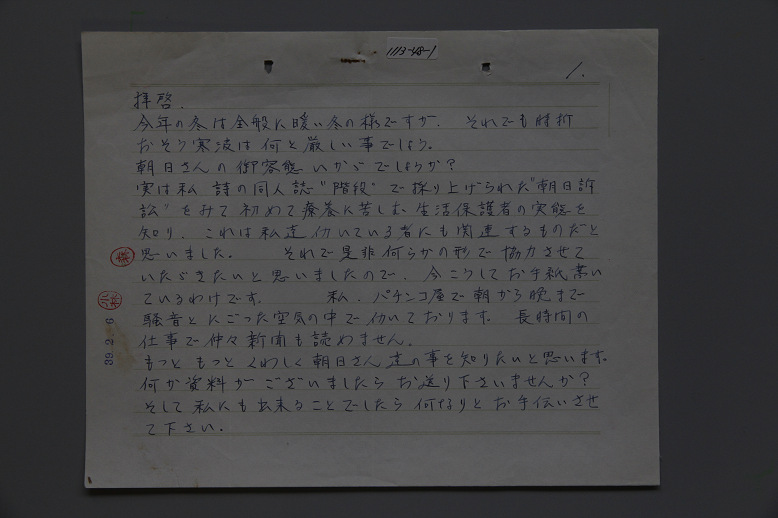 1113-48-1
1.
拝啓.
今年の冬は全般に暖い冬の様ですが、それでも時折
おそう寒波は何と厳しい事でしょう。
朝日さんの御容態いかがでしょうか?
実は私 詩の同人誌"階段"で採り上げられた"朝日訴
訟"をみて初めて療養に苦しむ生活保護者の実態を
知り、これは私達仂いている者にも関連するものだと
思いました。 それで是非何らかの形で協力させて
いただきたいと思いましたので、今こうしてお手紙書い
ているわけです。 私、パチンコ屋で朝から晩まで
騒音とにごった空気の中で仂いております。長時間の
仕事で仲々新聞も読めません。
もっともっとくわしく朝日さん達の事を知りたいと思います。
何か資料がございましたらお送り下さいませんか?
そして私にも出来ることでしたら何なりとお手伝いさせ
て下さい.
39.2.6